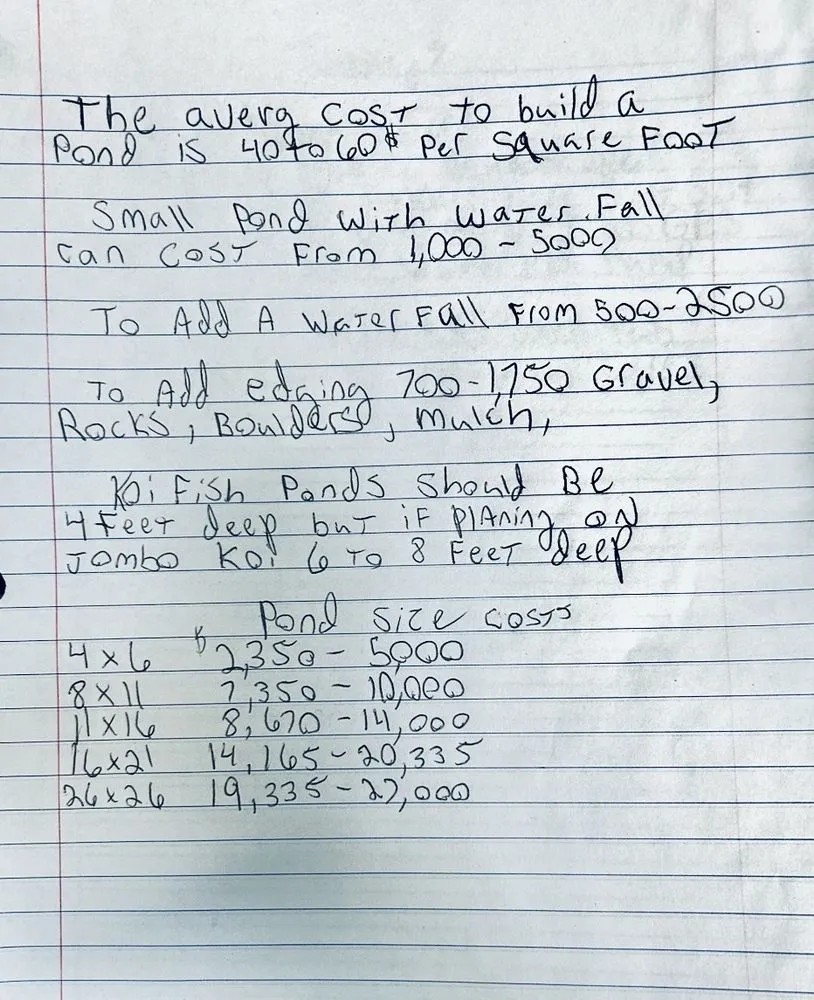 The averg cost to build a
Pond is 40 to 60$ Per Square Foot
Small Pond with Water Fall
can cost From 1,000 - 5000
To Add A Water Fall From 500-2500
To Add edging 700-1,750 Gravel,
Rocks, Boulders, mulch,
Koi Fish Ponds should Be
4 Feet deep but if planing on
Jombo Koi 6 To 8 Feet deep
Pond Size costs
4x6 $2,350 - 5,000
8x11 7,350 - 10,000
11x16 8,670 - 14,000
16x21 14,165 - 20,335
26x26 19,335 - 27,000